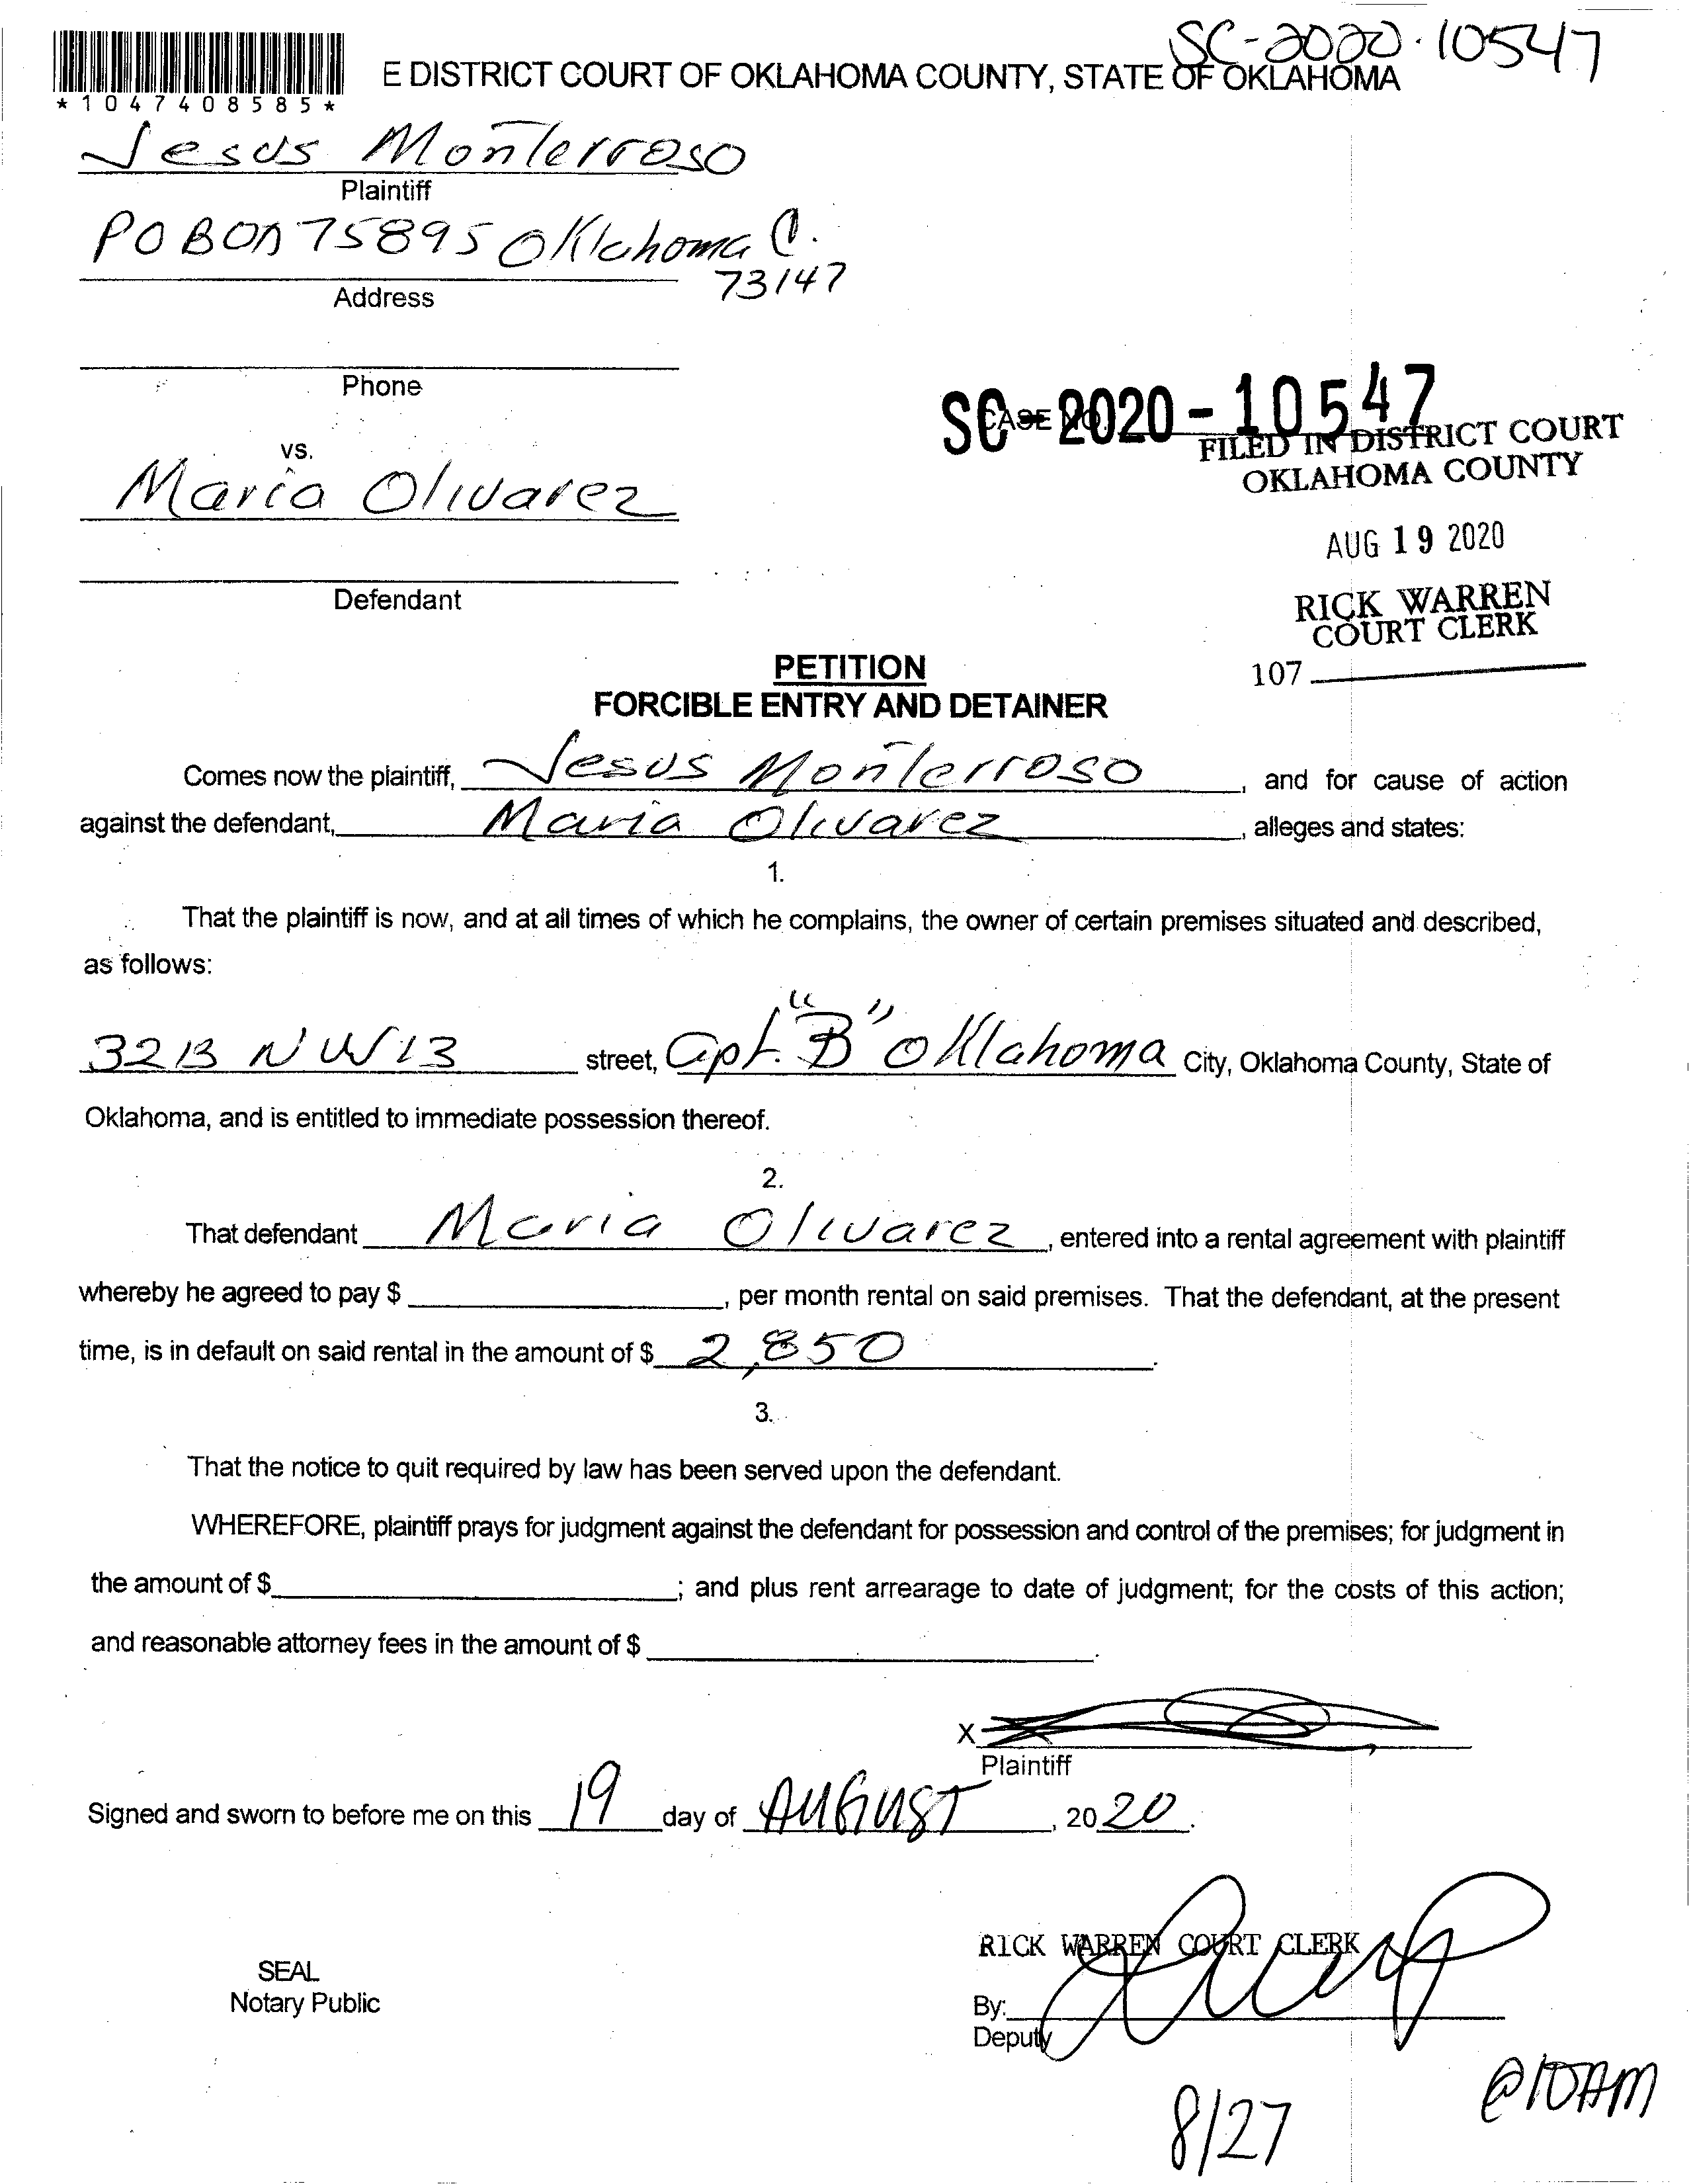 SC-2020-10547
E DISTRICT COURT OF OKLAHOMA COUNTY, STATE OF OKLAHOMA
*1047408585*
Jesus Monterroso
Plaintiff
PO BOX 75895 Oklahoma C.
73147
Address
Phone
SC-2020-10547
CASE NO.
FILED IN DISTRICT COURT
OKLAHOMA COUNTY
vs.
Maria Olivarez
AUG 19 2020
Defendant
RICK WARREN
COURT CLERK
107
PETITION
FORCIBLE ENTRY AND DETAINER
Comes now the plaintiff, Jesus Monterroso, and for cause of action
against the defendant, Maria Olivarez, alleges and states:
1.
That the plaintiff is now, and at all times of which he complains, the owner of certain premises situated and described,
as follows:
3213 NW 13 street, apt. "B" Oklahoma City, Oklahoma County, State of
Oklahoma, and is entitled to immediate possession thereof.
2.
That defendant Maria Olivarez, entered into a rental agreement with plaintiff
whereby he agreed to pay $ , per month rental on said premises. That the defendant, at the present
time, is in default on said rental in the amount of $ 2,850.
3.
That the notice to quit required by law has been served upon the defendant.
WHEREFORE, plaintiff prays for judgment against the defendant for possession and control of the premises; for judgment in
the amount of $ ; and plus rent arrearage to date of judgment; for the costs of this action;
and reasonable attorney fees in the amount of $ .
X
Plaintiff
Signed and sworn to before me on this 19 day of AUGUST, 2020.
RICK WARREN COURT CLERK
SEAL
Notary Public
By:
Deputy
@10AM
8/27